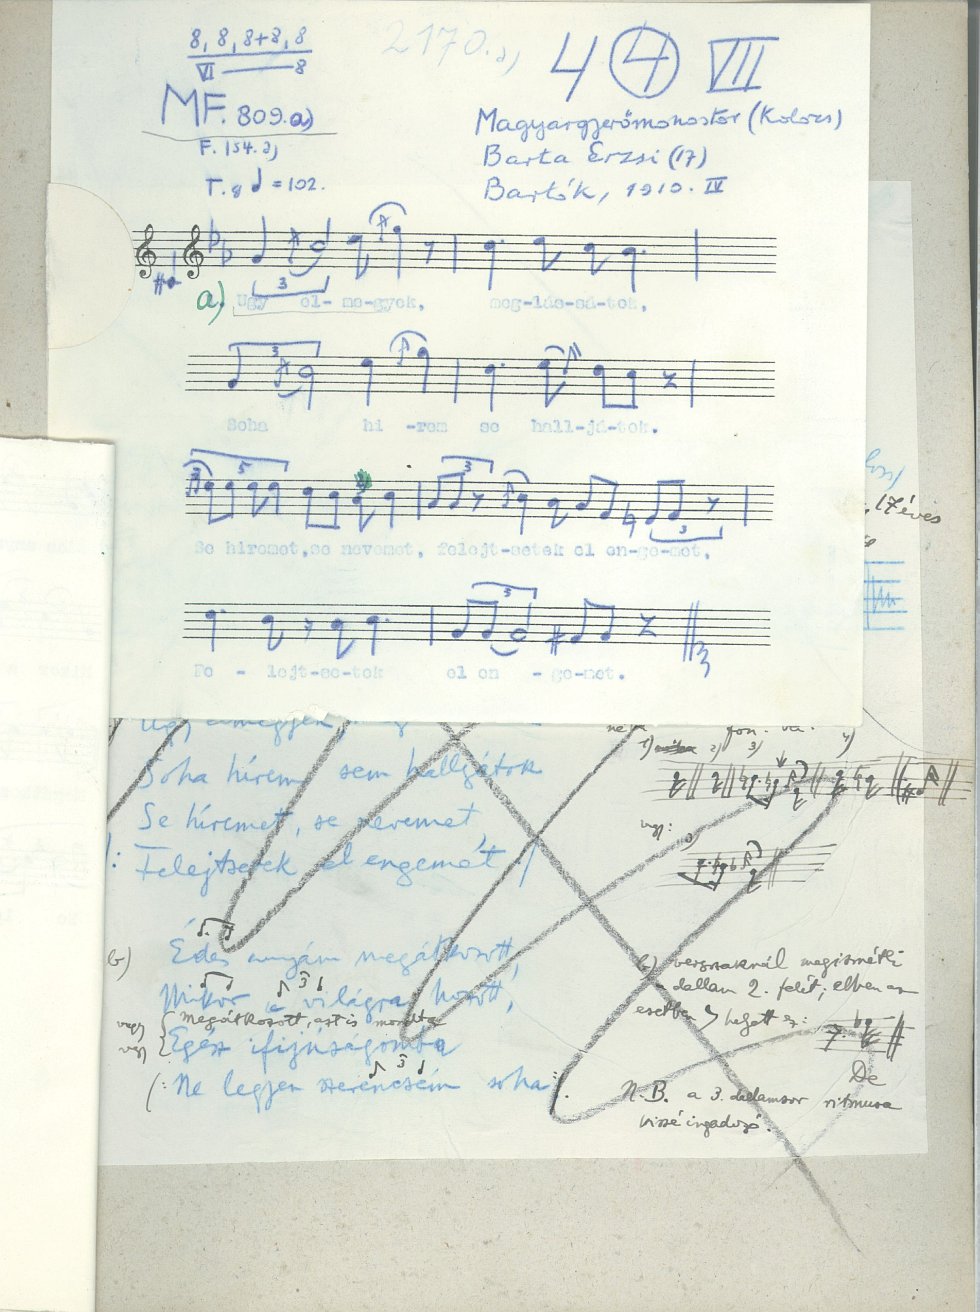 8, 8, 8+8, 8
VI — 8
2170. a)
4 4 VII
MF. 809. a)
F. 154. a)
T. g = 102.
Magyargyerőmonostor (Kolozs)
Barta Erzsi (17)
Bartók, 1910. IV
3
a) Ugy el- me-gyek, meg-lás-sá-tok,
3
Soha hi -rem se hall-já-tok.
5 3
Se hiremet,se nevemet, felejt-setek el en-ge-met,
3
3
Fe - lejt-se-tek el en - ge-met.
17 éves
1) 2) 3) 4)
Soha hírem sem hallgátok
Se híremet, se nevemet,
vagy:
: Felejtsetek el engemet :/
b) Édes anyám megátkozott,
Mikor a világra hozott,
3
vagy { megátkozott, azt is mondta
vagy { Egész ifijúságomba
3
(: Ne legyen szerencsém soha :).
b) versszaknál megismétli
dallam 2. felét; ebben az
esetben helyett ez:
N.B. a 3. dallamsor ritmusa
kissé ingadozó.